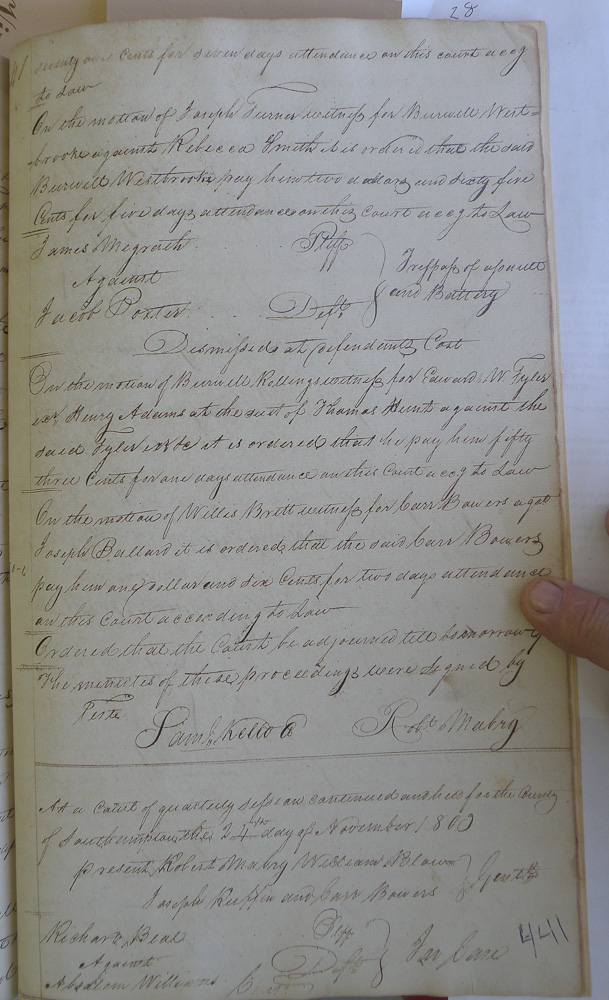 28
seventy one Cents for seven days attendance on this court accg
to Law
On the motion of Joseph Turner witness for Burwell West=
brooke against Rebecca Smith it is ordered that the said
Burwell Westbrooke pay him two dollars and sixty five
Cents for five days attendance on this court accg to Law
James Megreath Pltff
Against
Trespass of assault
and Battery
Jacob Porter Deft
Dismissed at defendents Cost
On the motion of Burwell Killings witness for Edward W. Tyler
exr Henry Adams at the suit of Thomas Hunt against the
said Tyler exr &c it is ordered that he pay him fifty
three Cents for one days attendance on this Court accg to Law
On the motion of Willis Britt witness for Carr Bowers agst
Joseph Ballard it is ordered that the said Carr Bowers
pay him one dollar and six Cents for two days attendance
on this Court according to Law
Ordered that the Court be adjourned till tomorrow
The minutes of these proceedings were signed by
Teste
Saml Kello Robt Mabry
At a Court of quarterly session continued and held for the County
of Southampton the 24th day of November 1800
present Robert Mabry William Blow
Joseph Ruffin and Carr Bowers Gentn
Richard Beal Pltff
Against
In Case
Deft
Absalom Williams
441